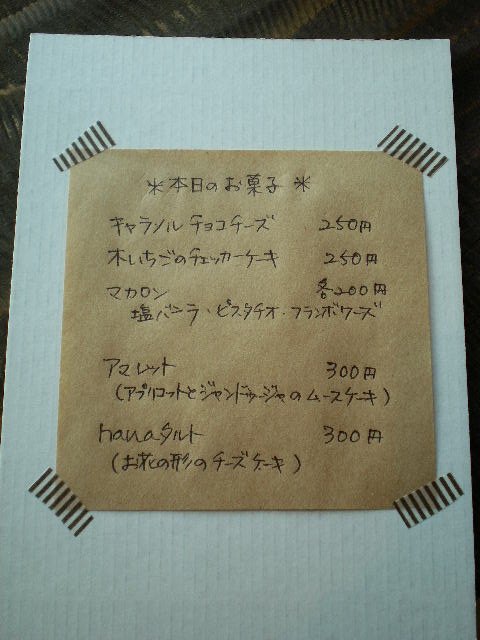 ※本日のお菓子※
キャラメルチョコチーズ 250円
木いちごのチェッカーケーキ 250円
マカロン 各200円
塩バニラ・ピスタチオ・フランボワーズ
アマレット 300円
(アプリコットとジャンドゥージャのムースケーキ)
hanaタルト 300円
(お花の形のチーズケーキ)